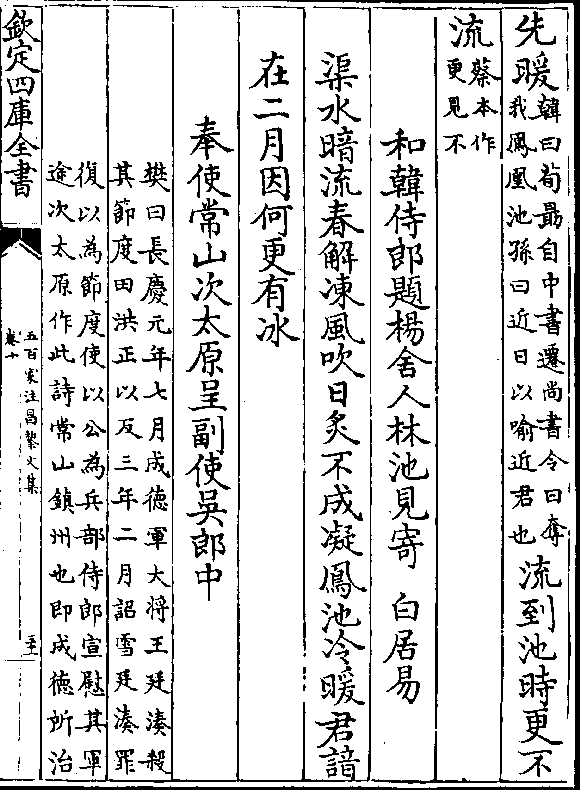 先暖韓曰荀勗自中書遷尚書令曰奪
我鳳凰池孫曰近日以喻近君也流到池時更不
流蔡本作
更見不
和韓侍郎題楊舍人林池見寄 白居易
渠水暗流春解凍風吹日炙不成凝鳳池冷暖君諳
在二月因何更有冰
奉使常山次太原呈副使吳郎中
樊曰長慶元年七月成德軍大將王廷湊殺
其節度田洪正以反三年二月詔雪廷湊罪
復以為節度使以公為兵部侍郎宣慰其軍
途次太原作此詩常山鎮州也即成德所治
欽定四庫全書
五百家注昌黎文集
卷十